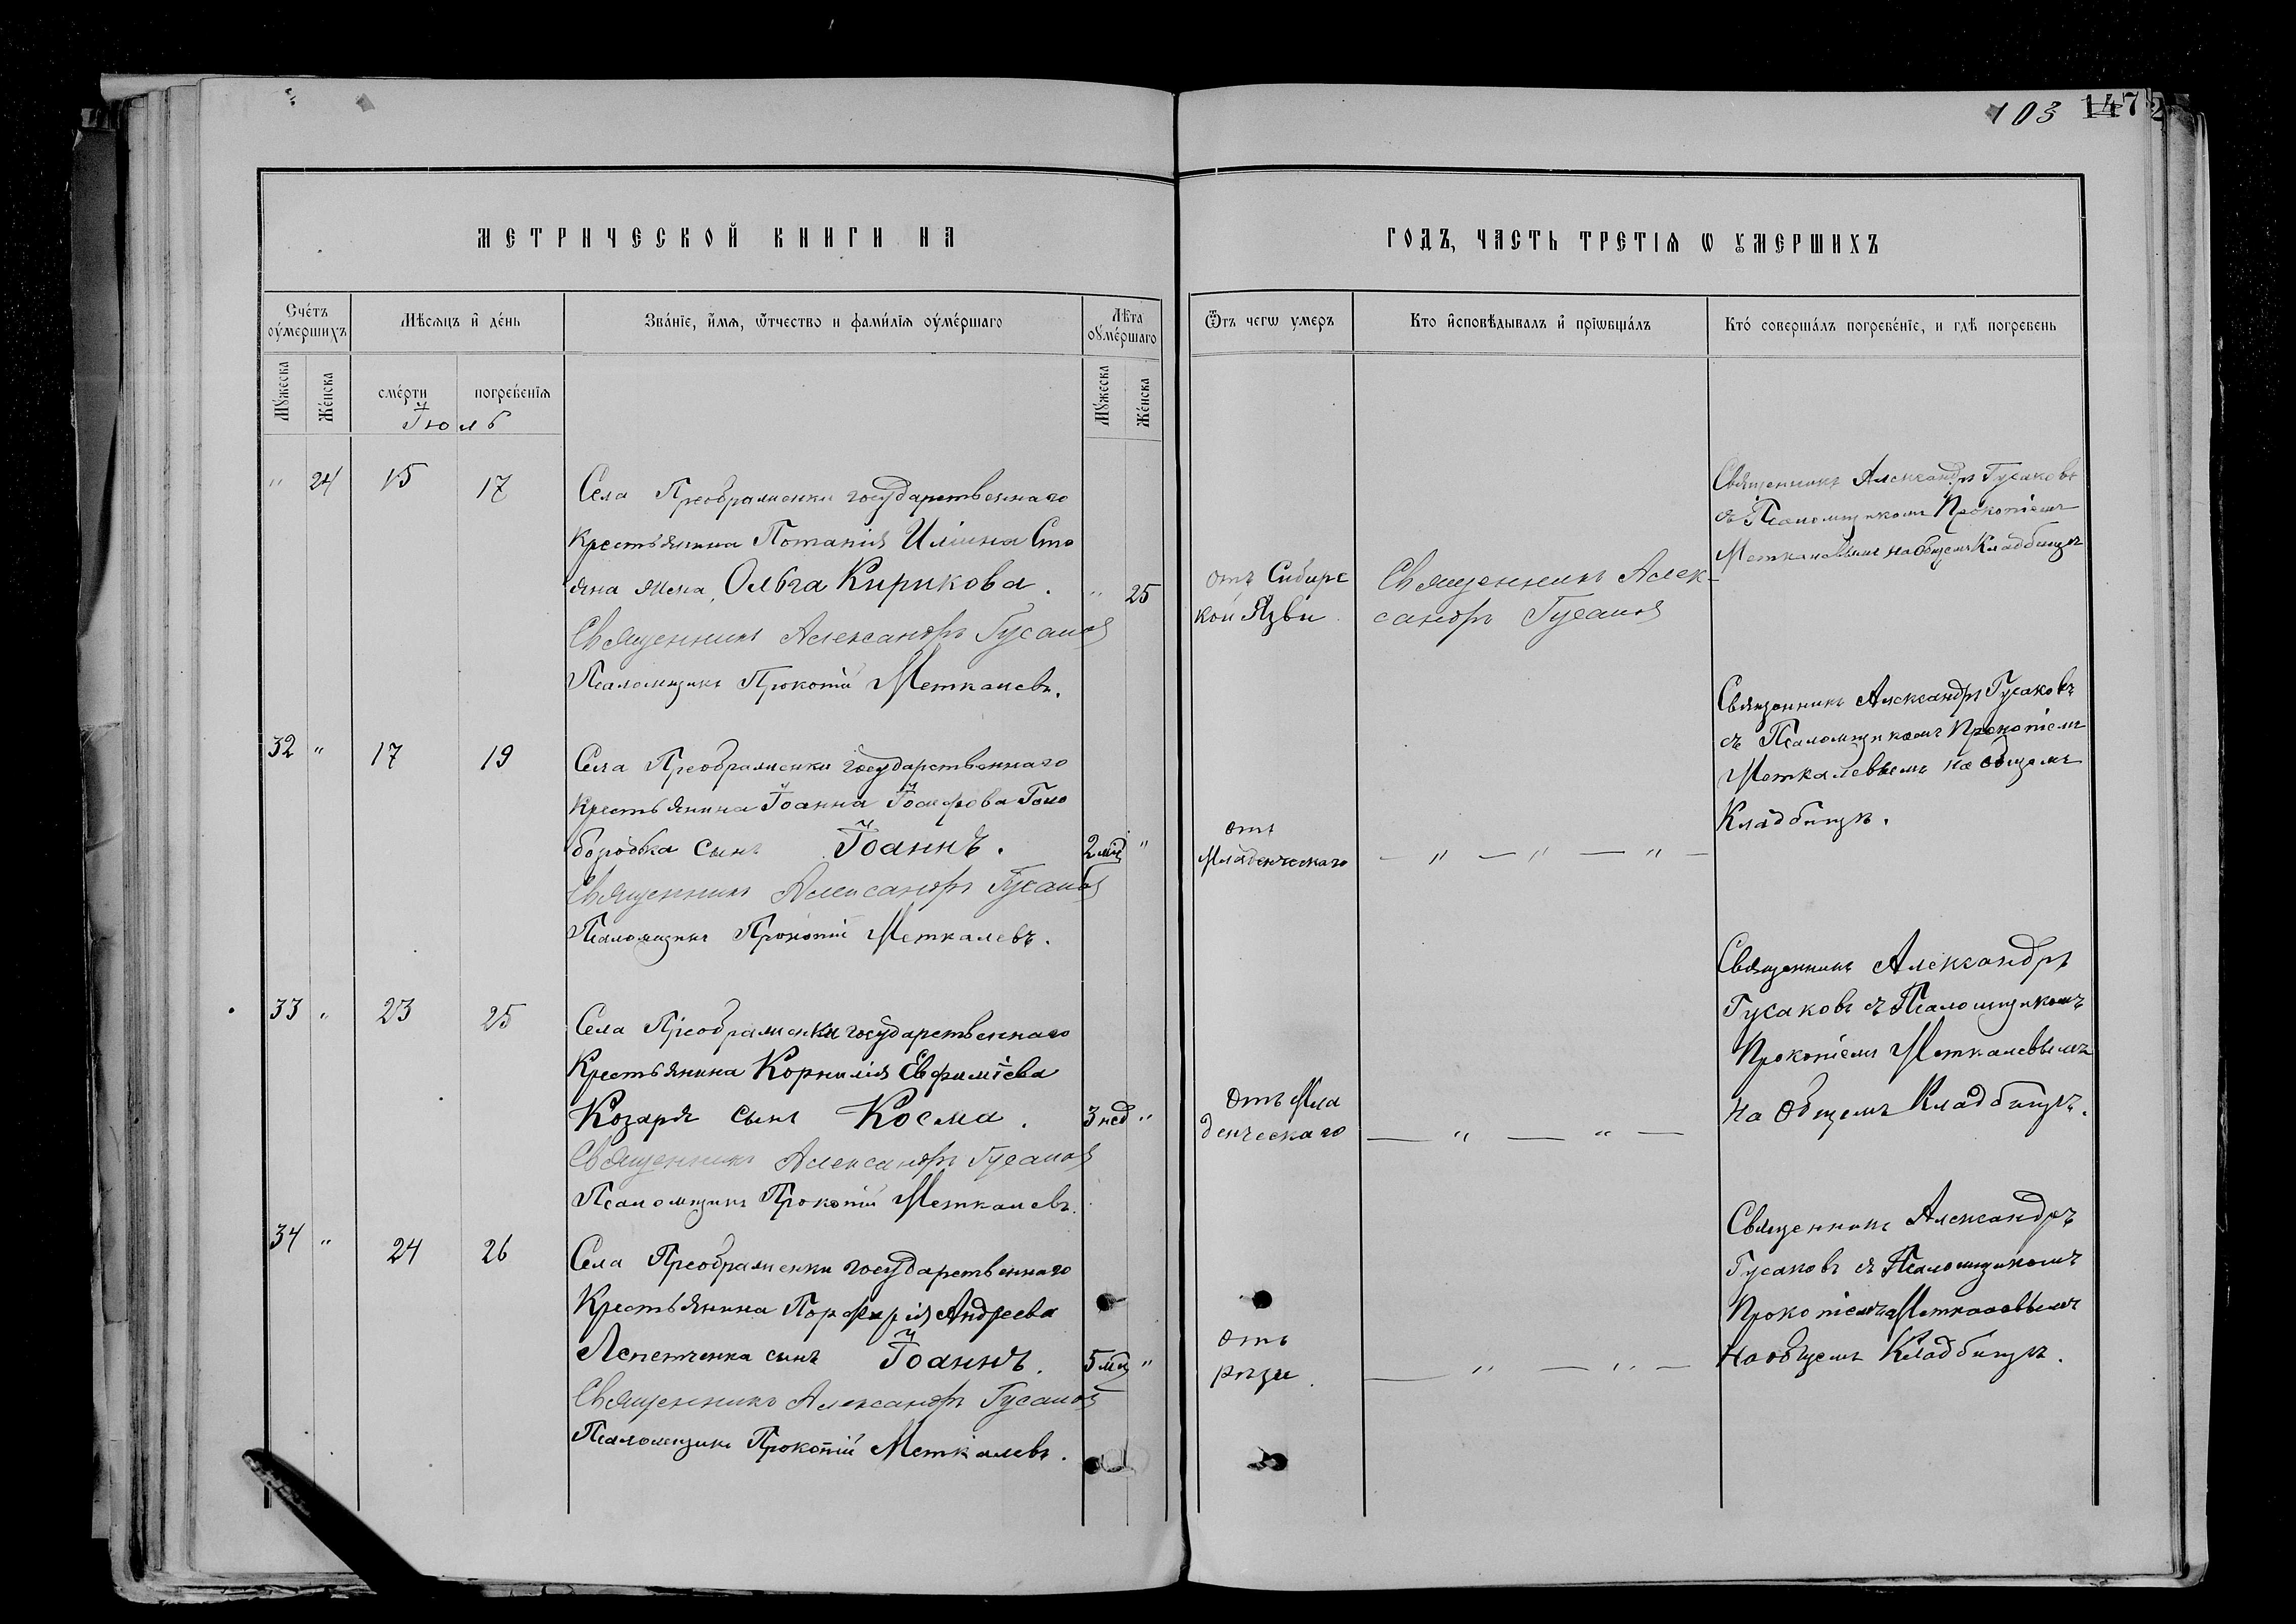 103 147 2
МЕТРИЧЕСКОЙ КНИГИ НА
ГОДЪ, ЧАСТЬ ТРЕТІѦ Ѡ ꙊМЕРШИХЪ
Сче́тъ ᲂу҆ме́ршихъ
Мѣсѧцъ и҆ де́нь
Зва́нїе, и҆́мѧ, ѻ҆́тчество и фами́лїѧ ᲂу҆ме́ршаго
Лѣ́та ᲂу҆ме́ршаго
Ѿъ чегѡ умеръ
Кто и҆сповѣ́дывалъ и҆ прїѡбща́лъ
Кто́ соверша́лъ погребе́нїе, и гдѣ̀ погребенъ
Мꙋ́жеска
Же́нска
сме́рти
погребе́нїѧ
Мꙋ́жеска
Же́нска
Іюль
" 24 15 17
Села Преображенки государственнаго
крестьянина Потапія Иліина Сто
яна жена, Ольга Кирикова. " 25
Священникъ Александръ Гусаков
Псаломщикъ Прокопій Меткалевъ.
отъ Сибирс
кой Язви.
Священникъ Алек-
сандръ Гусаков
Священникъ Александръ Гусаковъ
съ Псаломщикомъ Прокопіемъ
Меткалевымъ на общемъ Кладбищѣ
32 " 17 19
Села Преображенки государственнаго
крестьянина Іоанна Іосифова Голо
бородька сынъ Іоаннъ. 2 мѣс "
Священникъ Александръ Гусаков
Псаломщикъ Прокопій Меткалевъ.
отъ
Младенческаго
— " — " — " —
Священникъ Александръ Гусаковъ
съ Псаломщикомъ Прокопіемъ
Меткалевымъ на общемъ
Кладбищѣ.
33 " 23 25
Села Преображенки государственнаго
Крестьянина Корнилія Евфиміева
Козаря сынъ Косма. 3 нед "
Священникъ Александръ Гусаков
Псаломщикъ Прокопій Меткалевъ.
Отъ Мла
денческаго
— " — " —
Священникъ Александръ
Гусаковъ съ Псаломщикомъ
Прокопіемъ Меткалевымъ
на общемъ Кладбищѣ.
34 " 24 26
Села Преображенки государственнаго
Крестьянина Порфирія Андреева
Лепетченка сынъ Іоаннъ. 5 мѣс "
Священникъ Александръ Гусаков
Псаломщикъ Прокопій Меткалевъ.
отъ
рѣзи.
— " — " —
Священникъ Александръ
Гусаковъ съ Псаломщикомъ
Прокопіемъ Меткалевымъ
На общемъ Кладбищѣ.